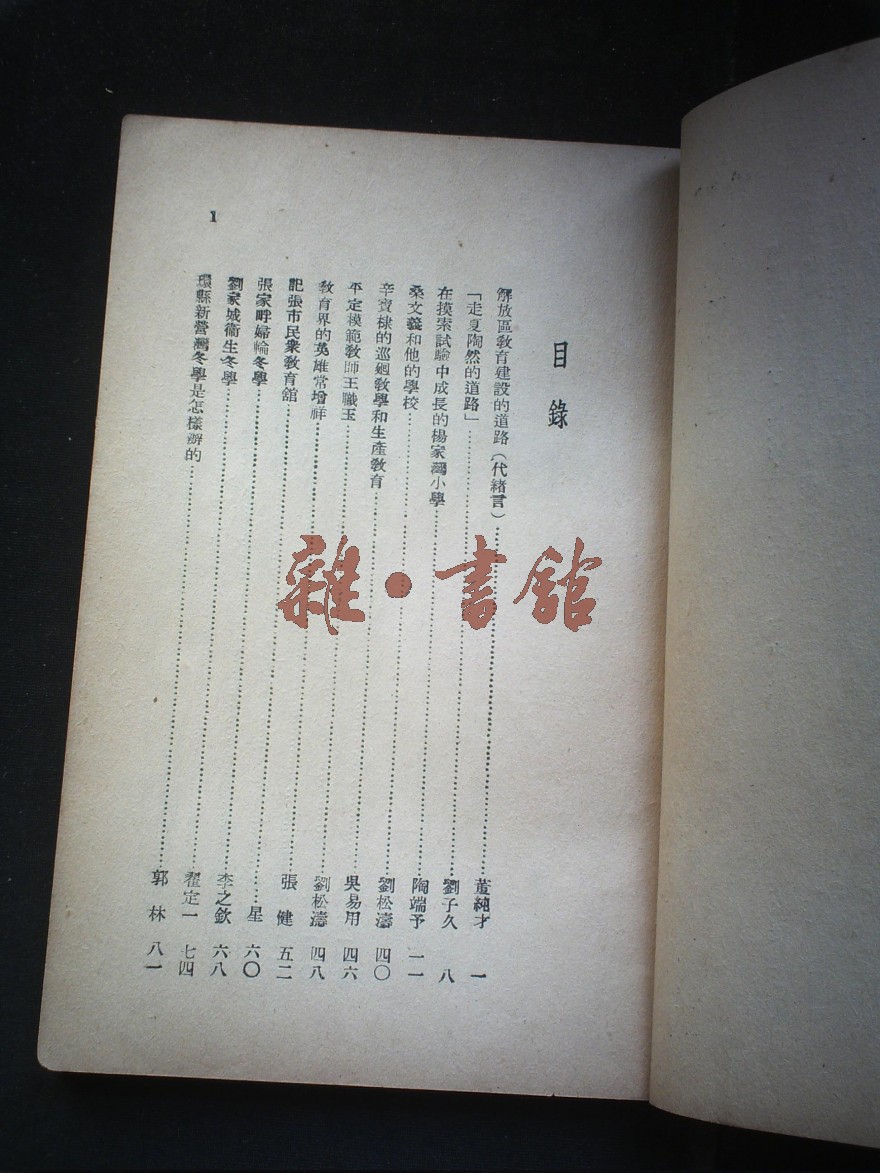 目錄
解放區教育建設的道路（代緒言）……董純才 一
「走夏陶然的道路」……劉子久 八
在摸索試驗中成長的楊家灣小學……陶端予 一一
桑文義和他的學校……劉松濤 四〇
辛寶棣的巡廻教學和生產教育……吳易用 四六
平定模範教師王職玉……劉松濤 四八
教育界的英雄常增祥……張健 五二
記張市民衆教育舘……星 六〇
張家畔婦輪冬學……李之欽 六八
劉家城衞生冬學……翟定一 七四
環縣新營灣冬學是怎樣辦的……郭林 八一
1
雜·書舘